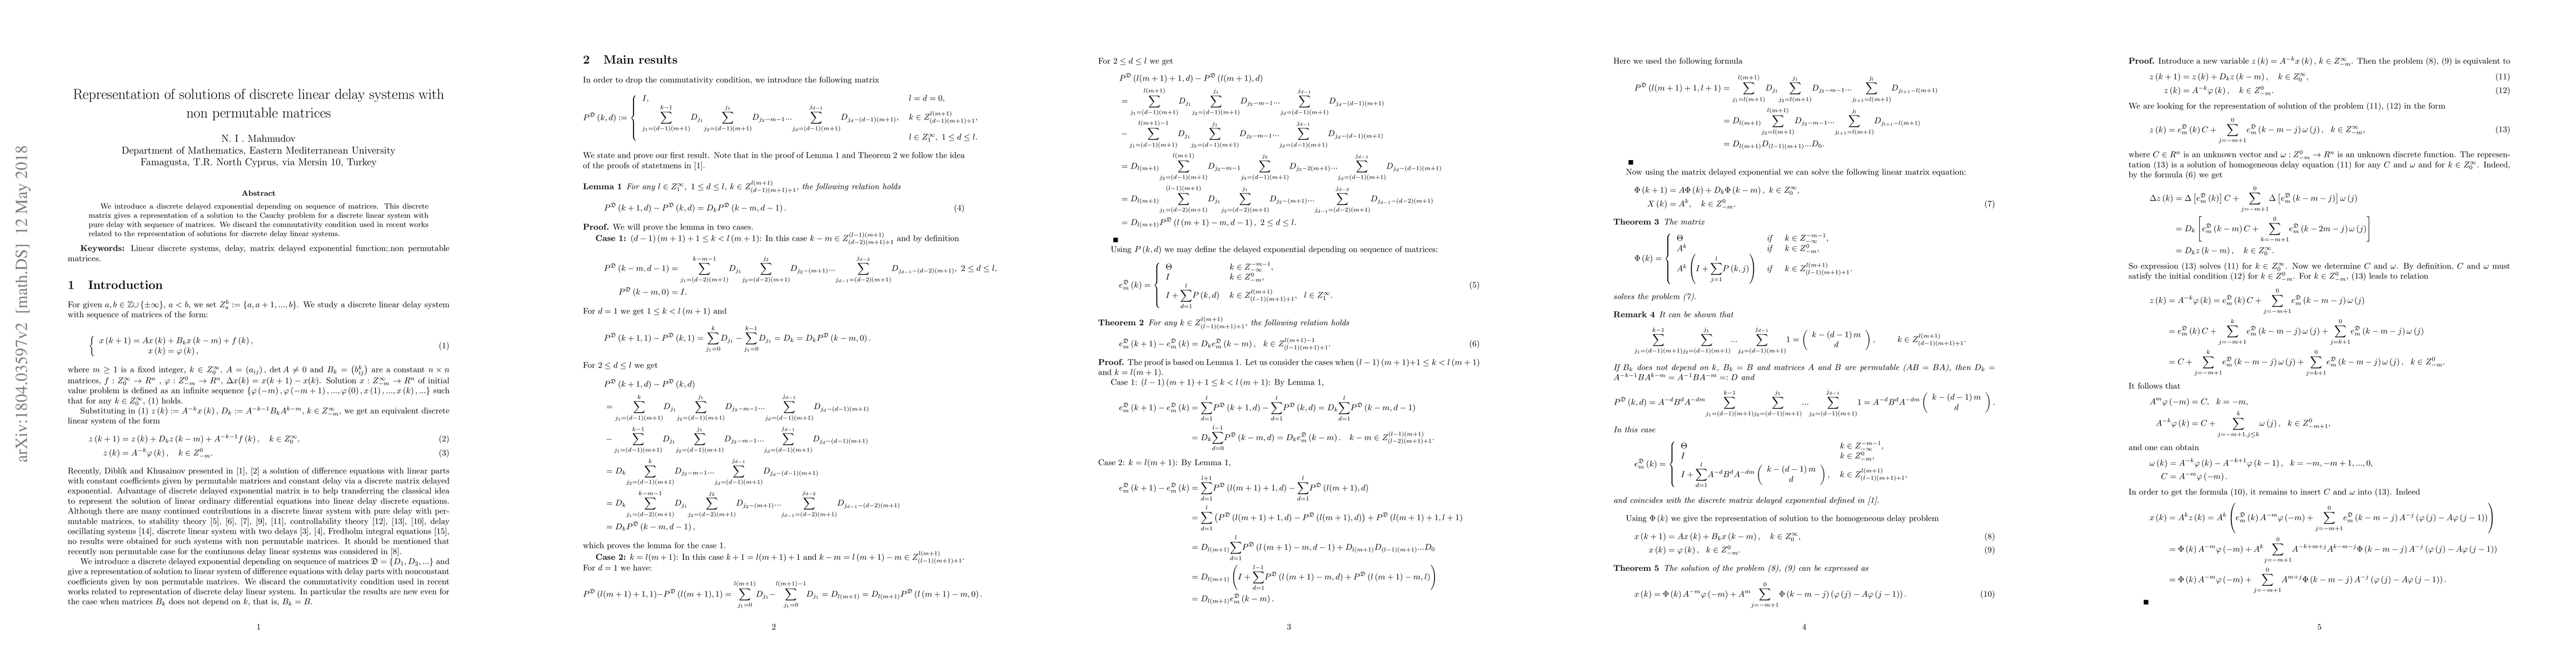 arXiv:1804.03597v2 [math.DS] 12 May 2018
Representation of solutions of discrete linear delay systems with
non permutable matrices
N. I . Mahmudov
Department of Mathematics, Eastern Mediterranean University
Famagusta, T.R. North Cyprus, via Mersin 10, Turkey
Abstract
We introduce a discrete delayed exponential depending on sequence of matrices. This discrete
matrix gives a representation of a solution to the Cauchy problem for a discrete linear system with
pure delay with sequence of matrices. We discard the commutativity condition used in recent works
related to the representation of solutions for discrete delay linear systems.
Keywords: Linear discrete systems, delay, matrix delayed exponential function;.non permutable
matrices.
1 Introduction
For given a, b ∈ ℤ∪ {±∞}, a < b, we set Z_a^b := {a, a + 1, ..., b}. We study a discrete linear delay system
with sequence of matrices of the form:
{ x (k + 1) = Ax (k) + B_k x (k − m) + f (k) ,
x (k) = φ (k) , (1)
where m ≥ 1 is a fixed integer, k ∈ Z_0^∞, A = (a_{ij}) , det A ≠ 0 and B_k = (b_{ij}^k) are a constant n × n
matrices, f : Z_0^∞ → R^n , φ : Z_{−m}^0 → R^n, Δx(k) = x(k + 1) − x(k). Solution x : Z_{−m}^∞ → R^n of initial
value problem is defined as an infinite sequence {φ (−m) , φ (−m + 1) , ..., φ (0) , x (1) , ..., x (k) , ...} such
that for any k ∈ Z_0^∞, (1) holds.
Substituting in (1) z (k) := A^{−k}x (k) , D_k := A^{−k−1}B_kA^{k−m}, k ∈ Z_{−m}^∞, we get an equivalent discrete
linear system of the form
z (k + 1) = z (k) + D_k z (k − m) + A^{−k−1}f (k) , k ∈ Z_0^∞, (2)
z (k) = A^{−k}φ (k) , k ∈ Z_{−m}^0. (3)
Recently, Diblík and Khusainov presented in [1], [2] a solution of difference equations with linear parts
with constant coefficients given by permutable matrices and constant delay via a discrete matrix delayed
exponential. Advantage of discrete delayed exponential matrix is to help transferring the classical idea
to represent the solution of linear ordinary differential equations into linear delay discrete equations.
Although there are many continued contributions in a discrete linear system with pure delay with per-
mutable matrices, to stability theory [5], [6], [7], [9], [11], controllability theory [12], [13], [10], delay
oscillating systems [14], discrete linear system with two delays [3], [4], Fredholm integral equations [15],
no results were obtained for such systems with non permutable matrices. It should be mentioned that
recently non permutable case for the continuous delay linear systems was considered in [8].
We introduce a discrete delayed exponential depending on sequence of matrices 𝔇 = {D_1, D_2, ...} and
give a representation of solution to linear system of difference equations with delay parts with nonconstant
coefficients given by non permutable matrices. We discard the commutativity condition used in recent
works related to representation of discrete delay linear system. In particular the results are new even for
the case when matrices B_k does not depend on k, that is, B_k = B.
1
2 Main results
In order to drop the commutativity condition, we introduce the following matrix
P^𝔇 (k, d) := { I, l = d = 0,
∑_{j_1=(d−1)(m+1)}^{k−1} D_{j_1} ∑_{j_2=(d−1)(m+1)}^{j_1} D_{j_2−m−1}... ∑_{j_d=(d−1)(m+1)}^{j_{d−1}} D_{j_d−(d−1)(m+1)}, k ∈ Z_{(d−1)(m+1)+1}^{l(m+1)},
l ∈ Z_1^∞, 1 ≤ d ≤ l.
We state and prove our first result. Note that in the proof of Lemma 1 and Theorem 2 we follow the idea
of the proofs of statetmens in [1].
Lemma 1 For any l ∈ Z_1^∞, 1 ≤ d ≤ l, k ∈ Z_{(d−1)(m+1)+1}^{l(m+1)}, the following relation holds
P^𝔇 (k + 1, d) − P^𝔇 (k, d) = D_k P^𝔇 (k − m, d − 1) . (4)
Proof. We will prove the lemma in two cases.
Case 1: (d − 1) (m + 1) + 1 ≤ k < l (m + 1): In this case k − m ∈ Z_{(d−2)(m+1)+1}^{(l−1)(m+1)} and by definition
P^𝔇 (k − m, d − 1) = ∑_{j_1=(d−2)(m+1)}^{k−m−1} D_{j_1} ∑_{j_2=(d−2)(m+1)}^{j_2} D_{j_2−(m+1)}... ∑_{j_{d−1}=(d−2)(m+1)}^{j_{d−2}} D_{j_{d−1}−(d−2)(m+1)}, 2 ≤ d ≤ l,
P^𝔇 (k − m, 0) = I.
For d = 1 we get 1 ≤ k < l (m + 1) and
P^𝔇 (k + 1, 1) − P^𝔇 (k, 1) = ∑_{j_1=0}^{k} D_{j_1} − ∑_{j_1=0}^{k−1} D_{j_1} = D_k = D_k P^𝔇 (k − m, 0) .
For 2 ≤ d ≤ l we get
P^𝔇 (k + 1, d) − P^𝔇 (k, d)
= ∑_{j_1=(d−1)(m+1)}^{k} D_{j_1} ∑_{j_2=(d−1)(m+1)}^{j_1} D_{j_2−m−1}... ∑_{j_d=(d−1)(m+1)}^{j_{d−1}} D_{j_d−(d−1)(m+1)}
− ∑_{j_1=(d−1)(m+1)}^{k−1} D_{j_1} ∑_{j_2=(d−1)(m+1)}^{j_1} D_{j_2−m−1}... ∑_{j_d=(d−1)(m+1)}^{j_{d−1}} D_{j_d−(d−1)(m+1)}
= D_k ∑_{j_2=(d−1)(m+1)}^{k} D_{j_2−m−1}... ∑_{j_d=(d−1)(m+1)}^{j_{d−1}} D_{j_d−(d−1)(m+1)}
= D_k ∑_{j_1=(d−2)(m+1)}^{k−m−1} D_{j_1} ∑_{j_2=(d−2)(m+1)}^{j_2} D_{j_2−(m+1)}... ∑_{j_{d−1}=(d−2)(m+1)}^{j_{d−2}} D_{j_{d−1}−(d−2)(m+1)}
= D_k P^𝔇 (k − m, d − 1) ,
which proves the lemma for the case 1.
Case 2: k = l(m + 1): In this case k + 1 = l(m + 1) + 1 and k − m = l (m + 1) − m ∈ Z_{(l−1)(m+1)+1}^{l(m+1)}.
For d = 1 we have:
P^𝔇 (l(m + 1) + 1, 1)−P^𝔇 (l(m + 1), 1) = ∑_{j_1=0}^{l(m+1)} D_{j_1}− ∑_{j_1=0}^{l(m+1)−1} D_{j_1} = D_{l(m+1)} = D_{l(m+1)}P^𝔇 (l (m + 1) − m, 0) .
2
For 2 ≤ d ≤ l we get
P^𝔇 (l(m + 1) + 1, d) − P^𝔇 (l(m + 1), d)
= ∑_{j_1=(d−1)(m+1)}^{l(m+1)} D_{j_1} ∑_{j_2=(d−1)(m+1)}^{j_1} D_{j_2−m−1}... ∑_{j_d=(d−1)(m+1)}^{j_{d−1}} D_{j_d−(d−1)(m+1)}
− ∑_{j_1=(d−1)(m+1)}^{l(m+1)−1} D_{j_1} ∑_{j_2=(d−1)(m+1)}^{j_1} D_{j_2−m−1}... ∑_{j_d=(d−1)(m+1)}^{j_{d−1}} D_{j_d−(d−1)(m+1)}
= D_{l(m+1)} ∑_{j_2=(d−1)(m+1)}^{l(m+1)} D_{j_2−m−1} ∑_{j_3=(d−1)(m+1)}^{j_2} D_{j_3−2(m+1)}... ∑_{j_d=(d−1)(m+1)}^{j_{d−1}} D_{j_d−(d−1)(m+1)}
= D_{l(m+1)} ∑_{j_1=(d−2)(m+1)}^{(l−1)(m+1)} D_{j_1} ∑_{j_2=(d−2)(m+1)}^{j_1} D_{j_2−(m+1)}... ∑_{j_{d−1}=(d−2)(m+1)}^{j_{d−2}} D_{j_{d−1}−(d−2)(m+1)}
= D_{l(m+1)}P^𝔇 (l (m + 1) − m, d − 1) , 2 ≤ d ≤ l.
■
Using P (k, d) we may define the delayed exponential depending on sequence of matrices:
e_m^𝔇 (k) = { Θ k ∈ Z_{−∞}^{−m−1},
I k ∈ Z_{−m}^0,
I + ∑_{d=1}^{l} P (k, d) k ∈ Z_{(l−1)(m+1)+1}^{l(m+1)}, l ∈ Z_1^∞. (5)
Theorem 2 For any k ∈ Z_{(l−1)(m+1)+1}^{l(m+1)}, the following relation holds
e_m^𝔇 (k + 1) − e_m^𝔇 (k) = D_k e_m^𝔇 (k − m) , k ∈ Z_{(l−1)(m+1)+1}^{l(m+1)−1}. (6)
Proof. The proof is based on Lemma 1. Let us consider the cases when (l − 1) (m + 1)+1 ≤ k < l (m + 1)
and k = l(m + 1).
Case 1: (l − 1) (m + 1) + 1 ≤ k < l (m + 1): By Lemma 1,
e_m^𝔇 (k + 1) − e_m^𝔇 (k) = ∑_{d=1}^{l} P^𝔇 (k + 1, d) − ∑_{d=1}^{l} P^𝔇 (k, d) = D_k ∑_{d=1}^{l} P^𝔇 (k − m, d − 1)
= D_k ∑_{d=0}^{l−1} P^𝔇 (k − m, d) = D_k e_m^𝔇 (k − m) . k − m ∈ Z_{(l−2)(m+1)+1}^{(l−1)(m+1)}.
Case 2: k = l(m + 1): By Lemma 1,
e_m^𝔇 (k + 1) − e_m^𝔇 (k) = ∑_{d=1}^{l+1} P^𝔇 (l(m + 1) + 1, d) − ∑_{d=1}^{l} P^𝔇 (l(m + 1), d)
= ∑_{d=1}^{l} (P^𝔇 (l(m + 1) + 1, d) − P^𝔇 (l(m + 1), d)) + P^𝔇 (l(m + 1) + 1, l + 1)
= D_{l(m+1)} ∑_{d=1}^{l} P^𝔇 (l (m + 1) − m, d − 1) + D_{l(m+1)}D_{(l−1)(m+1)}...D_0
= D_{l(m+1)} (I + ∑_{d=1}^{l−1} P^𝔇 (l (m + 1) − m, d) + P^𝔇 (l (m + 1) − m, l))
= D_{l(m+1)}e_m^𝔇 (k − m) .
3
Here we used the following formula
P^𝔇 (l(m + 1) + 1, l + 1) = ∑_{j_1=l(m+1)}^{l(m+1)} D_{j_1} ∑_{j_2=l(m+1)}^{j_1} D_{j_2−m−1}... ∑_{j_{l+1}=l(m+1)}^{j_l} D_{j_{l+1}−l(m+1)}
= D_{l(m+1)} ∑_{j_2=l(m+1)}^{l(m+1)} D_{j_2−m−1}... ∑_{j_{l+1}=l(m+1)}^{j_l} D_{j_{l+1}−l(m+1)}
= D_{l(m+1)}D_{(l−1)(m+1)}...D_0.
■
Now using the matrix delayed exponential we can solve the following linear matrix equation:
Φ (k + 1) = AΦ (k) + D_kΦ (k − m) , k ∈ Z_0^∞,
X (k) = A^k, k ∈ Z_{−m}^0. (7)
Theorem 3 The matrix
Φ (k) = { Θ if k ∈ Z_{−∞}^{−m−1},
A^k if k ∈ Z_{−m}^0,
A^k (I + ∑_{j=1}^{l} P (k, j)) if k ∈ Z_{(l−1)(m+1)+1}^{l(m+1)},
solves the problem (7).
Remark 4 It can be shown that
∑_{j_1=(d−1)(m+1)}^{k−1} ∑_{j_2=(d−1)(m+1)}^{j_1} ... ∑_{j_d=(d−1)(m+1)}^{j_{d−1}} 1 = ( k − (d − 1) m d ) , k ∈ Z_{(d−1)(m+1)+1}^{l(m+1)}.
If B_k does not depend on k, B_k = B and matrices A and B are permutable (AB = BA), then D_k =
A^{−k−1}BA^{k−m} = A^{−1}BA^{−m} =: D and
P^𝔇 (k, d) = A^{−d}B^dA^{−dm} ∑_{j_1=(d−1)(m+1)}^{k−1} ∑_{j_2=(d−1)(m+1)}^{j_1} ... ∑_{j_d=(d−1)(m+1)}^{j_{d−1}} 1 = A^{−d}B^dA^{−dm} ( k − (d − 1) m d ) .
In this case
e_m^𝔇 (k) = { Θ k ∈ Z_{−∞}^{−m−1},
I k ∈ Z_{−m}^0,
I + ∑_{d=1}^{l} A^{−d}B^dA^{−dm} ( k − (d − 1) m d ) , k ∈ Z_{(l−1)(m+1)+1}^{l(m+1)},
and coincides with the discrete matrix delayed exponential defined in [1].
Using Φ (k) we give the representation of solution to the homogeneous delay problem
x (k + 1) = Ax (k) + B_k x (k − m) , k ∈ Z_0^∞, (8)
x (k) = φ (k) , k ∈ Z_{−m}^0. (9)
Theorem 5 The solution of the problem (8), (9) can be expressed as
x (k) = Φ (k) A^{−m}φ (−m) + A^m ∑_{j=−m+1}^{0} Φ (k − m − j) (φ (j) − Aφ (j − 1)) . (10)
4
Proof. Introduce a new variable z (k) = A^{−k}x (k) , k ∈ Z_{−m}^∞. Then the problem (8), (9) is equivalent to
z (k + 1) = z (k) + D_k z (k − m) , k ∈ Z_0^∞, (11)
z (k) = A^{−k}φ (k) , k ∈ Z_{−m}^0. (12)
We are looking for the representation of solution of the problem (11), (12) in the form
z (k) = e_m^𝔇 (k) C + ∑_{j=−m+1}^{0} e_m^𝔇 (k − m − j) ω (j) , k ∈ Z_{−m}^∞, (13)
where C ∈ R^n is an unknown vector and ω : Z_{−m}^0 → R^n is an unknown discrete function. The represen-
tation (13) is a solution of homogeneous delay equation (11) for any C and ω and for k ∈ Z_0^∞. Indeed,
by the formula (6) we get
Δz (k) = Δ [e_m^𝔇 (k)] C + ∑_{j=−m+1}^{0} Δ [e_m^𝔇 (k − m − j)] ω (j)
= D_k [e_m^𝔇 (k − m) C + ∑_{k=−m+1}^{0} e_m^𝔇 (k − 2m − j) ω (j)]
= D_k z (k − m) , k ∈ Z_0^∞.
So expression (13) solves (11) for k ∈ Z_0^∞. Now we determine C and ω. By definition, C and ω must
satisfy the initial condition (12) for k ∈ Z_{−m}^0. For k ∈ Z_{−m}^0, (13) leads to relation
z (k) = A^{−k}φ (k) = e_m^𝔇 (k) C + ∑_{j=−m+1}^{0} e_m^𝔇 (k − m − j) ω (j)
= e_m^𝔇 (k) C + ∑_{j=−m+1}^{k} e_m^𝔇 (k − m − j) ω (j) + ∑_{j=k+1}^{0} e_m^𝔇 (k − m − j) ω (j)
= C + ∑_{j=−m+1}^{k} e_m^𝔇 (k − m − j) ω (j) + ∑_{j=k+1}^{0} e_m^𝔇 (k − m − j) ω (j) , k ∈ Z_{−m}^0.
It follows that
A^mφ (−m) = C, k = −m,
A^{−k}φ (k) = C + ∑_{j=−m+1,j≤k}^{k} ω (j) , k ∈ Z_{−m+1}^0,
and one can obtain
ω (k) = A^{−k}φ (k) − A^{−k+1}φ (k − 1) , k = −m, −m + 1, ..., 0,
C = A^{−m}φ (−m) .
In order to get the formula (10), it remains to insert C and ω into (13). Indeed
x (k) = A^k z (k) = A^k (e_m^𝔇 (k) A^{−m}φ (−m) + ∑_{j=−m+1}^{0} e_m^𝔇 (k − m − j) A^{−j} (φ (j) − Aφ (j − 1)))
= Φ (k) A^{−m}φ (−m) + A^k ∑_{j=−m+1}^{0} A^{−k+m+j}A^{k−m−j}Φ (k − m − j) A^{−j} (φ (j) − Aφ (j − 1))
= Φ (k) A^{−m}φ (−m) + ∑_{j=−m+1}^{0} A^{m+j}Φ (k − m − j) A^{−j} (φ (j) − Aφ (j − 1)) .
■
5